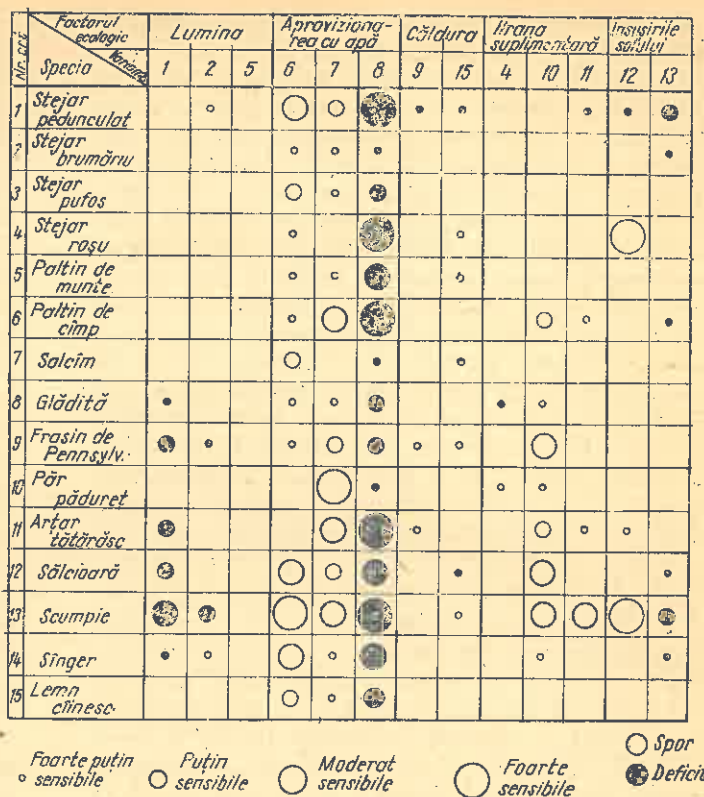 Nr. crt.
Factorul ecologic
Varianta
Specia
Lumina
Aprovizionarea cu apă
Căldura
Hrana suplimentară
Însușirile solului
1 2 5 6 7 8 9 15 4 10 11 12 13
1 Stejar pedunculat
2 Stejar brumăriu
3 Stejar pufos
4 Stejar roșu
5 Paltin de munte
6 Paltin de cîmp
7 Salcîm
8 Glădiță
9 Frasin de Pennsylv.
10 Păr păduret
11 Arțar tătărăsc
12 Sălcioară
13 Scumpie
14 Sînger
15 Lemn cîinesc
Foarte puțin sensibile
Puțin sensibile
Moderat sensibile
Foarte sensibile
Spor
Deficit